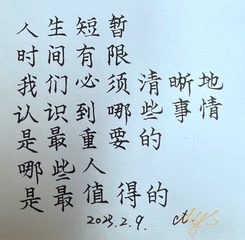 人生短暂
时间有限
我们必须清晰地
认识到哪些事情
是最重要的
哪些人
是最值得的
2023.2.9.